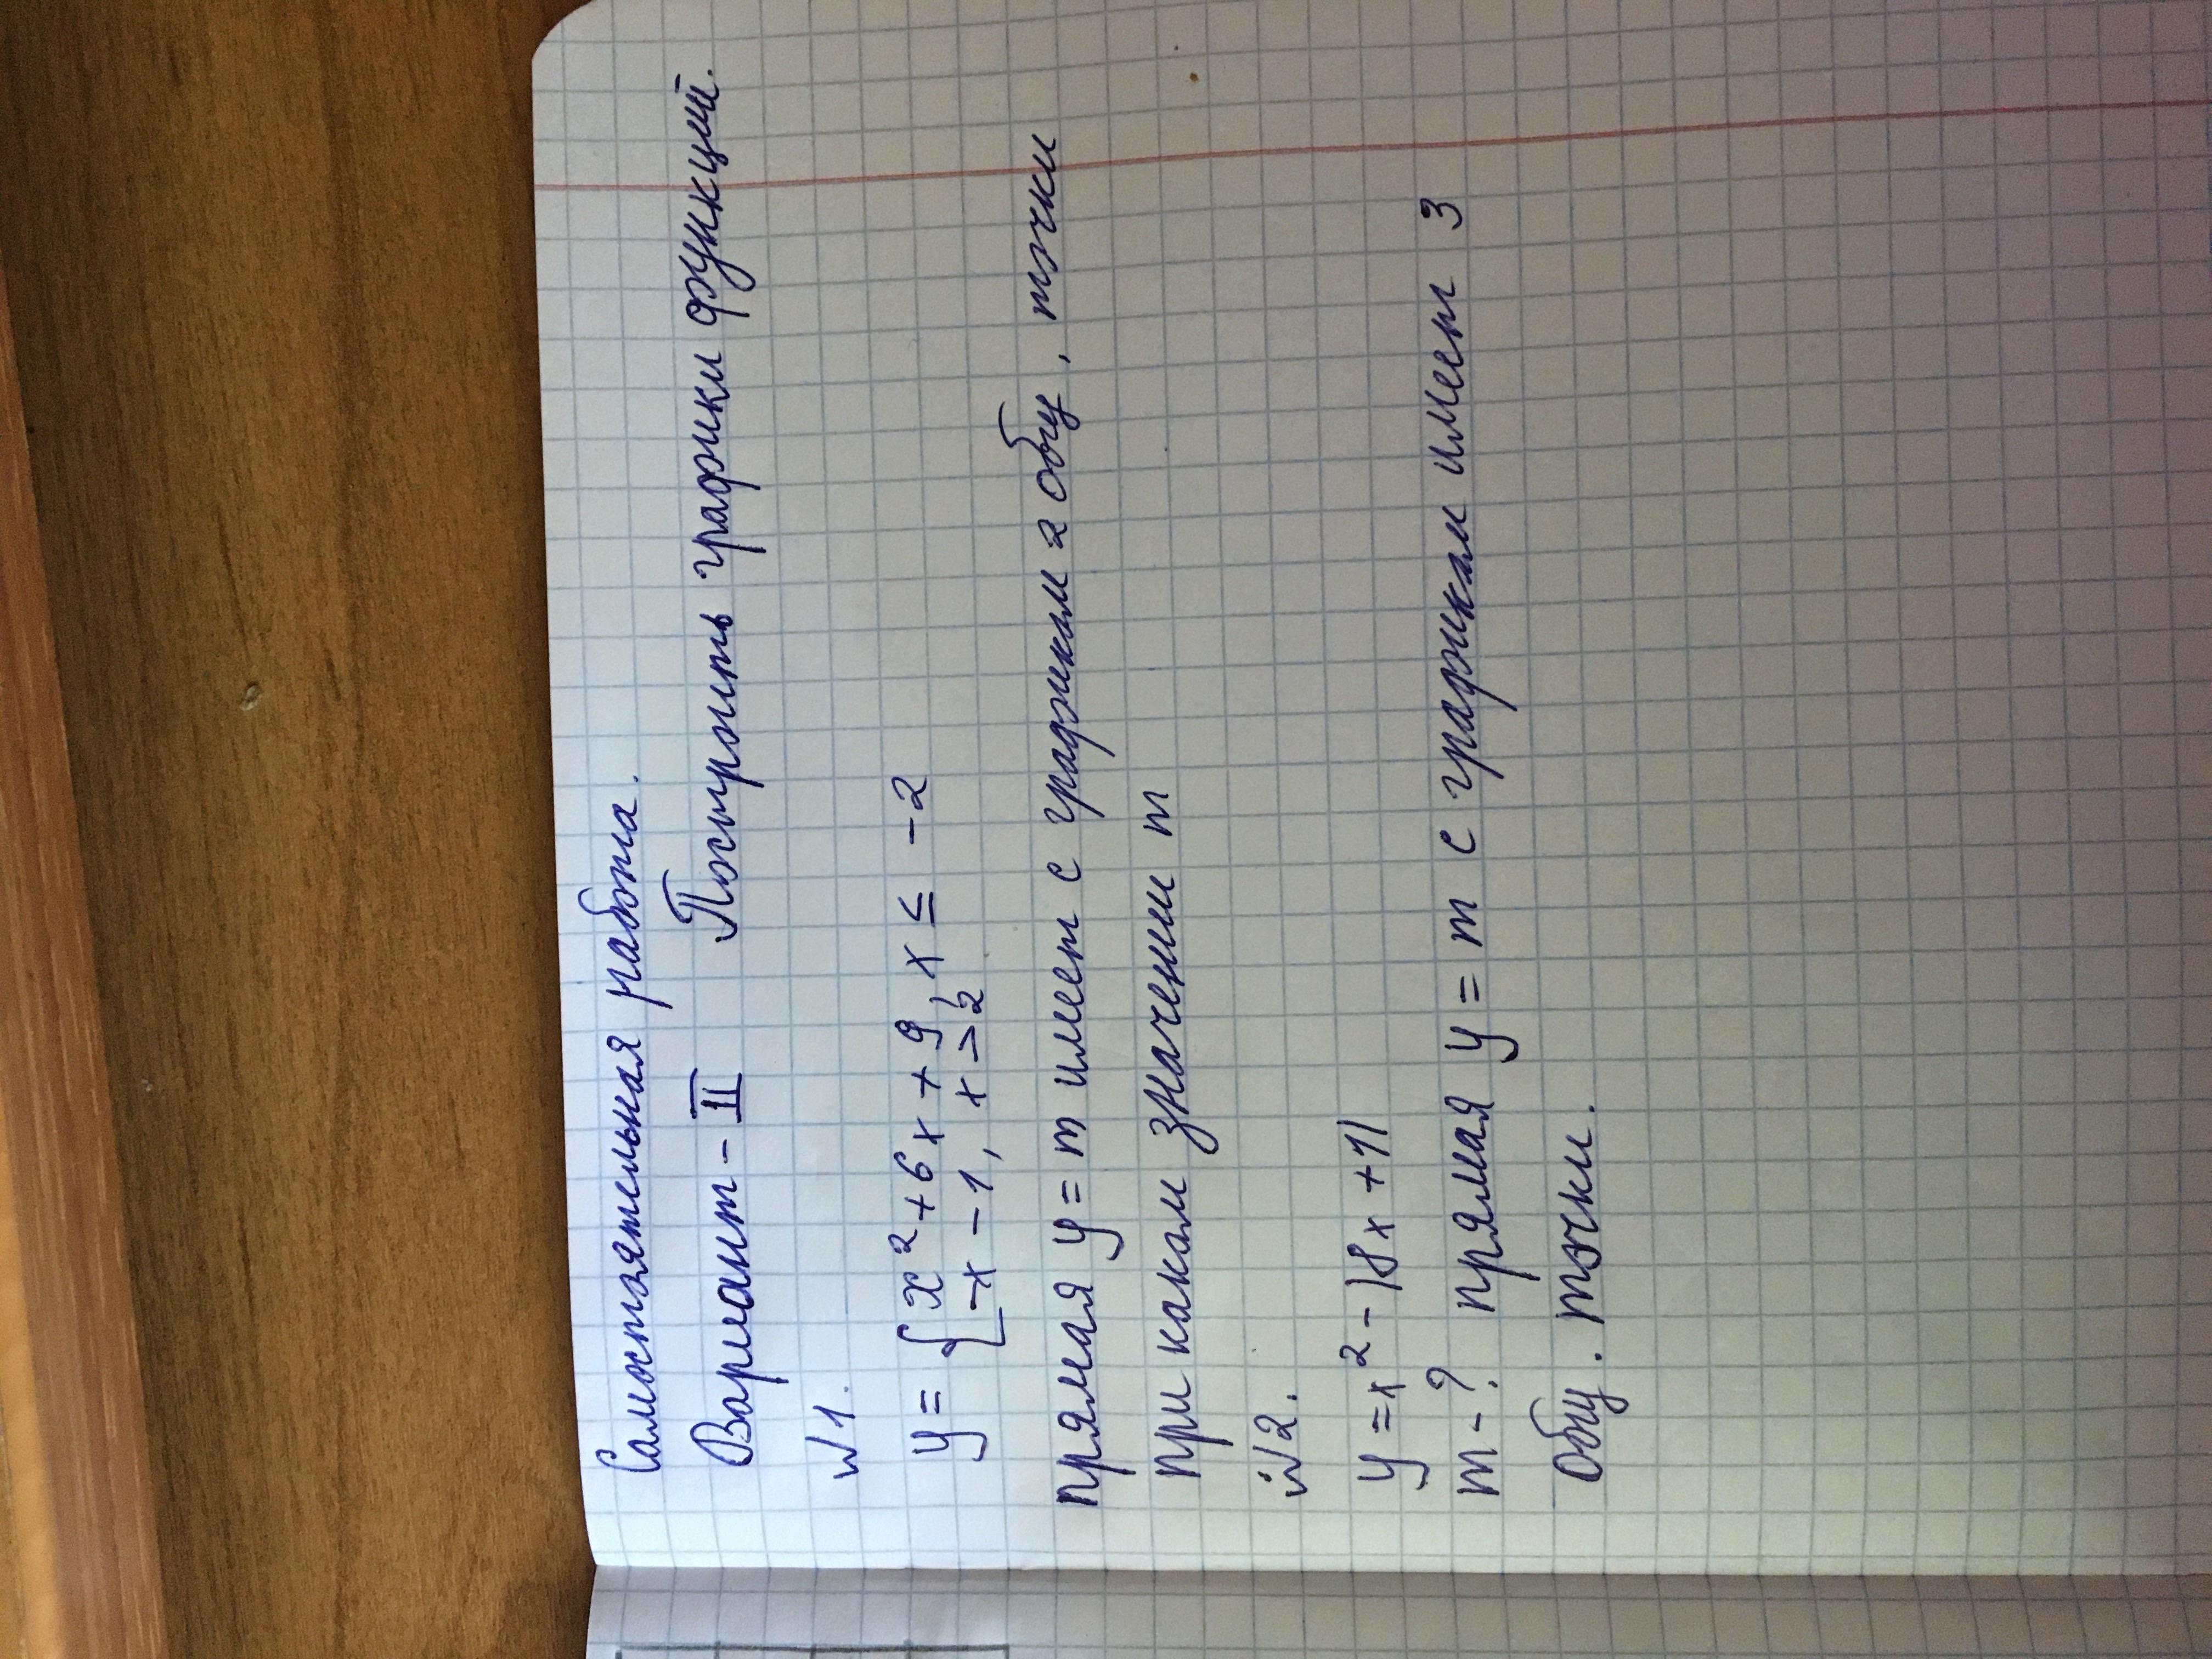 Самостоятельная работа.
Вариант - II Построить графики функций.
№1.
y = { x² + 6x + 9, x ≤ -2
-x - 1, x > -2
прямая y = m имеет с графиком 2 общ. точки
при каком значении m
№2.
y = x² - |8x + 1|
m - ? прямая y = m с графиком имеет 3
общ. точки.